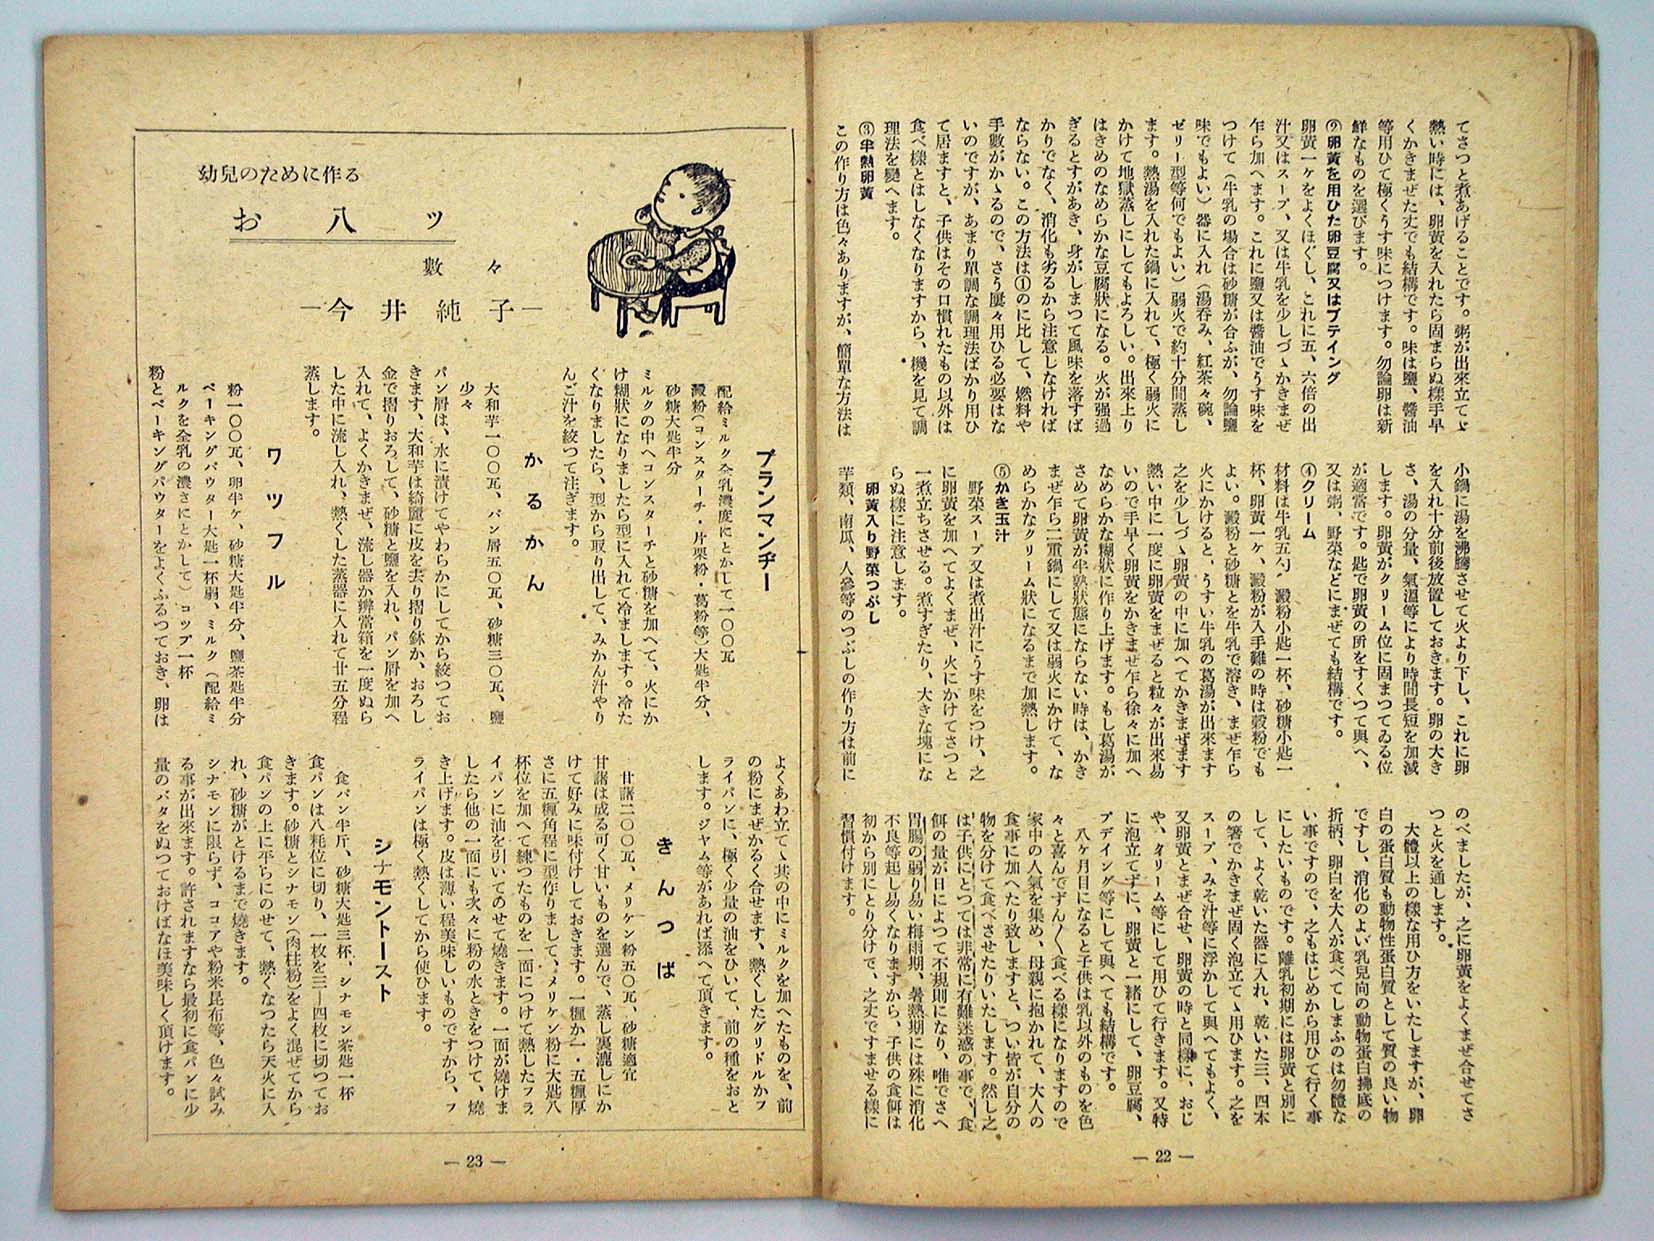 てさつと煮あげることです。粥が出來立てゝ
熱い時には、卵黄を入れたら固まらぬ樣手早
くかきまぜた丈でも結構です。味は鹽、醬油
等用ひて極くうす味につけます。勿論卵は新
鮮なものを選びます。
②卵黄を用ひた卵豆腐又はプテイング
卵黄一ケをよくほぐし、これに五、六倍の出
汁又はスープ、又は牛乳を少しづゝかきまぜ
乍ら加へます。これに鹽又は醬油でうす味を
つけて(牛乳の場合は砂糖が合ふが、勿論鹽
味でもよい)器に入れ(湯呑み、紅茶々碗、
ゼリー型等何でもよい)弱火で約十分間蒸し
ます。熱湯を入れた鍋に入れて、極く弱火に
かけて地獄蒸しにしてもよろしい。出來上り
はきめのなめらかな豆腐狀になる。火が强過
ぎるとすがあき、身がしまつて風味を落すば
かりでなく、消化も劣るから注意しなければ
ならない。この方法は①のに比して、燃料や
手數がかゝるので、さう屢々用ひる必要はな
いのですが、あまり單調な調理法ばかり用ひ
て居ますと、子供はその口慣れたもの以外は
食べ樣とはしなくなりますから、機を見て調
理法を變へます。
③半熟卵黄
この作り方は色々ありますが、簡單な方法は
小鍋に湯を沸騰させて火より下し、これに卵
を入れ十分前後放置しておきます。卵の大き
さ、湯の分量、氣溫等により時間長短を加減
します。卵黄がクリーム位に固まつてゐる位
が適當です。匙で卵黄の所をすくつて與へ、
又は粥、野菜などにまぜても結構です。
④クリーム
材料は牛乳五勺、澱粉小匙一杯、砂糖小匙一
杯、卵黄一ケ、澱粉が入手難の時は穀粉でも
よい。澱粉と砂糖とを牛乳で溶き、まぜ乍ら
火にかけると、うすい牛乳の葛湯が出來ます
之を少しづゝ卵黄の中に加へてかきまぜます
熱い中に一度に卵黄をまぜると粒々が出來易
いので手早く卵黄をかきまぜ乍ら徐々に加へ
なめらかな糊狀に作り上げます。もし葛湯が
さめて卵黄が半熟狀態にならない時は、かき
まぜ乍ら二重鍋にして又は弱火にかけて、な
めらかなクリーム狀になるまで加熱します。
⑤かき玉汁
野菜スープ又は煮出汁にうす味をつけ、之
に卵黄を加へてよくまぜ、火にかけてさつと
一煮立ちさせる。煮すぎたり、大きな塊にな
らぬ樣に注意します。
卵黄入り野菜つぶし
芋類、南瓜、人參等のつぶしの作り方は前に
のべましたが、之に卵黄をよくまぜ合せてさ
つと火を通します。
大體以上の樣な用ひ方をいたしますが、卵
白の蛋白質も動物性蛋白質として質の良い物
ですし、消化のよい乳兒向の動物蛋白拂底の
折柄、卵白を大人が食べてしまふのは勿體な
い事ですので、之もはじめから用ひて行く事
にしたいものです。離乳初期には卵黄と別に
して、よく乾いた器に入れ、乾いた三、四本
の箸でかきまぜ固く泡立てゝ用ひます。之を
スープ、みそ汁等に浮かして與へてもよく、
又卵黄とまぜ合せ、卵黄の時と同樣に、おじ
や、クリーム等にして用ひて行きます。又特
に泡立てずに、卵黄と一緒にして、卵豆腐、
プデイング等にして與へても結構です。
八ケ月目になると子供は乳以外のものを色
々と喜んでずん〱食べる樣になりますので
家中の人氣を集め、母親に抱かれて、大人の
食事に加へたり致しますと、つい皆が自分の
物を分けて食べさせたりいたします。然し之
は子供にとつては非常に有難迷惑の事で、食
餌の量が日によつて不規則になり、唯でさへ
胃腸の弱り易い梅雨期、暑熱期には殊に消化
不良等起し易くなりますから、子供の食餌は
初から別にとり分けて、之丈ですませる樣に
習慣付けます。
— 22 —
幼兒のために作る
お八ッ
數々
—今井純子—
ブランマンヂー
配給ミルク全乳濃度にとかして一〇〇瓦
澱粉(コンスターチ・片栗粉・葛粉等)大匙半分、
砂糖大匙半分
ミルクの中へコンスターチと砂糖を加へて、火にか
け糊狀になりましたら型に入れて冷まします。冷た
くなりましたら、型から取り出して、みかん汁やり
んご汁を絞つて注ぎます。
かるかん
大和芋一〇〇瓦、パン屑五〇瓦、砂糖三〇瓦、鹽
少々
パン屑は、水に漬けてやわらかにしてから絞つてお
きます、大和芋は綺麗に皮を去り摺り鉢か、おろし
金で摺りおろして、砂糖と鹽を入れ、パン屑を加へ
入れて、よくかきまぜ、流し器か辨當箱を一度ぬら
した中に流し入れ、熱くした蒸器に入れて廿五分程
蒸します。
ワッフル
粉一〇〇瓦、卵半ケ、砂糖大匙半分、鹽茶匙半分
ベーキングパウター大匙一杯弱、ミルク(配給ミ
ルクを全乳の濃さにとかして)コップ一杯
粉とベーキングパウターをよくふるつておき、卵は
よくあわ立てゝ其の中にミルクを加へたものを、前
の粉にまぜかるく合せます、熱くしたグリドルかフ
ライパンに、極く少量の油をひいて、前の種をおと
します。ジヤム等があれば添へて頂きます。
きんつば
甘藷二〇〇瓦、メリケン粉五〇瓦、砂糖適宜
甘藷は成る可く甘いものを選んで、蒸し裏漉しにか
けて好みに味付けしておきます。一糎か一・五糎厚
さに五糎角程に型作りまして、メリケン粉に大匙八
杯位を加へて練つたものを一面につけて熱したフラ
イパンに油を引いてのせて燒きます。一面が燒けま
したら他の一面にも次々に粉の水ときをつけて、燒
き上げます。皮は薄い程美味しいものですから、フ
ライパンは極く熱くしてから使ひます。
シナモントースト
食パン半斤、砂糖大匙三杯、シナモン茶匙一杯
食パンは八粍位に切り、一枚を三—四枚に切つてお
きます。砂糖とシナモン(肉柱粉)をよく混ぜてから
食パンの上に平らにのせて、熱くなつたら天火に入
れ、砂糖がとけるまで燒きます。
シナモンに限らず、ココアや粉米昆布等、色々試み
る事が出來ます。許されますなら最初に食パンに少
量のバタをぬつておけばなほ美味しく頂けます。
— 23 —